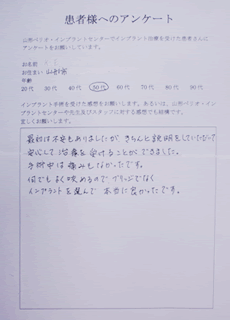 患者様へのアンケート
山形ペリオ・インプラントセンターでインプラント治療を受けた患者さんに
アンケートをお願いしています。
お名前
お住まい 山形市
年齢
20代 30代 40代 50代 60代 70代 80代 90代
インプラント手術を受けた感想をお願いします。あるいは、山形ペリオ・インプ
ラントセンターや先生及びスタッフに対する感想でも結構です。
宜しくお願いします。
最初は不安もありましたが、きちんと説明をしていただいて
安心して治療を受けることができました。
手術中は痛みもなかったです。
何でもよく咬めるので ブリッジでなく
インプラントを選んで 本当に良かったです。